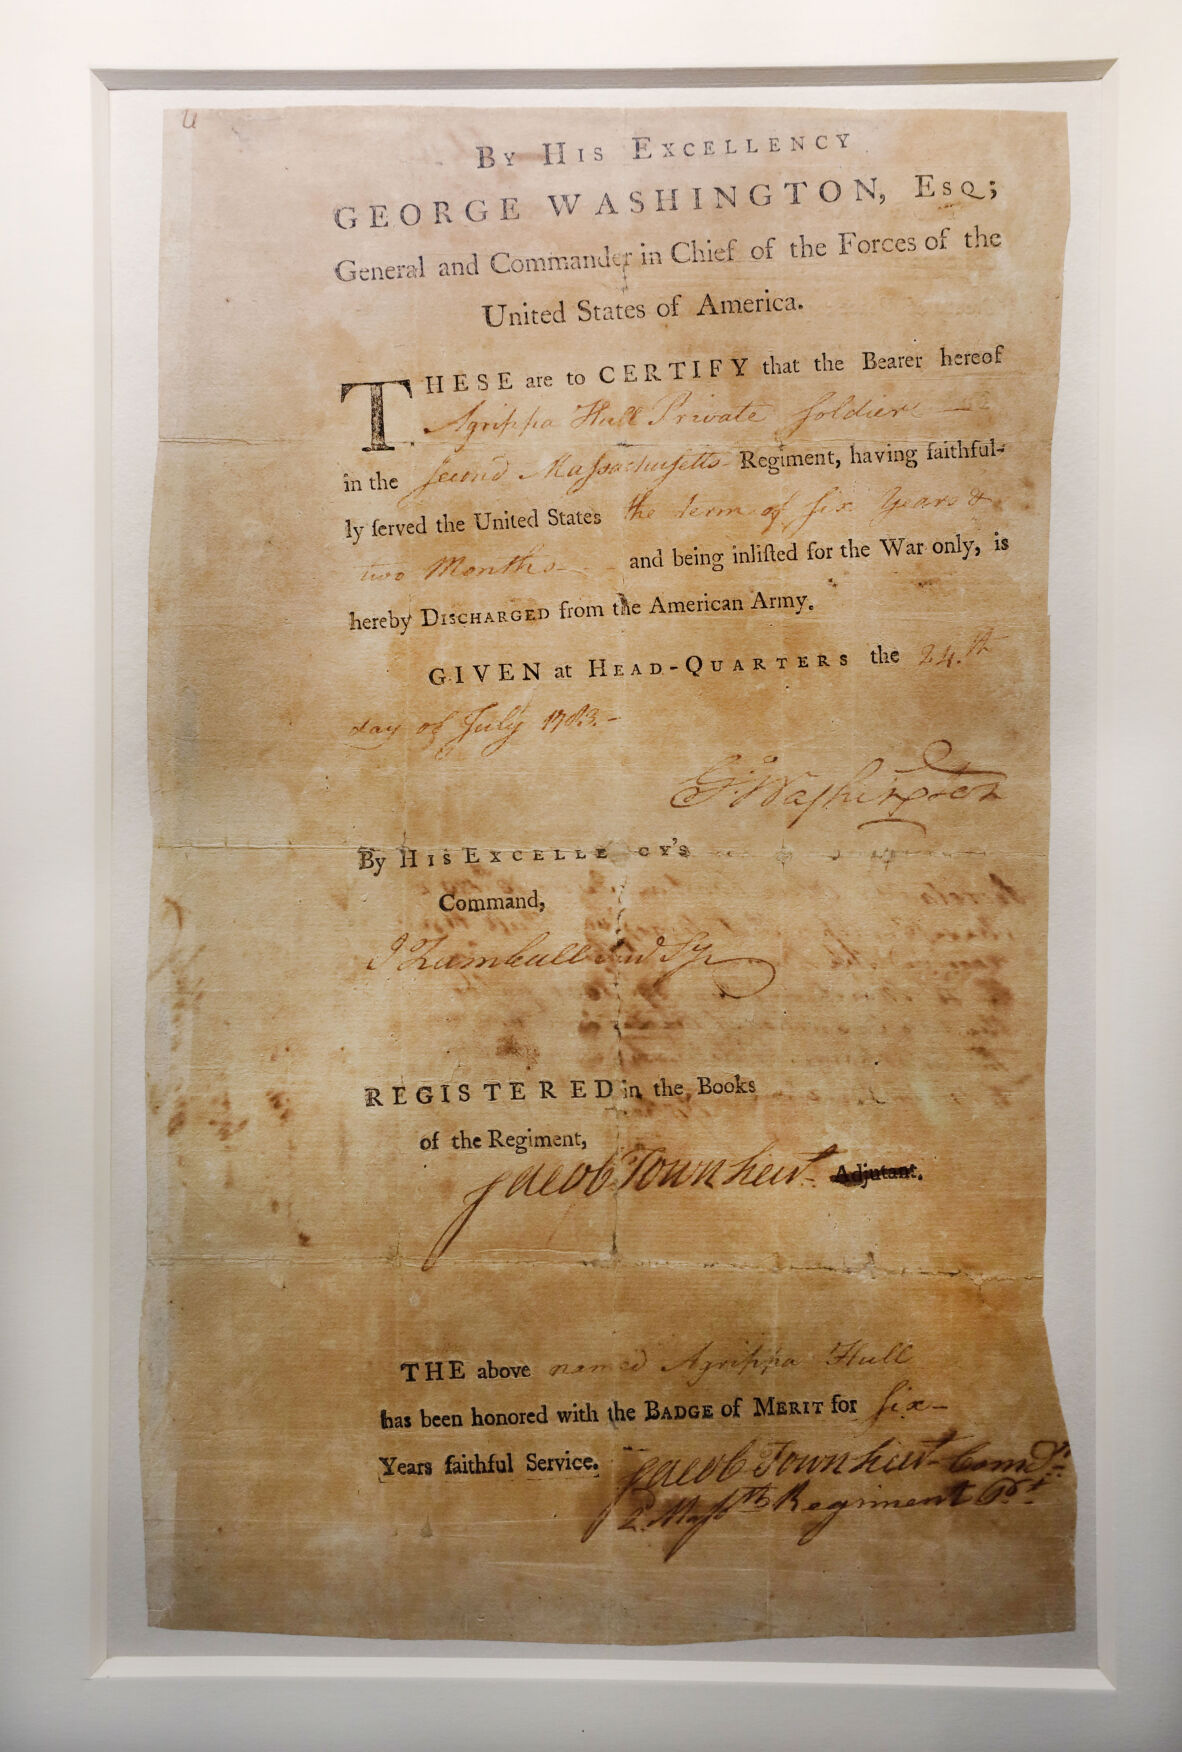 By His Excellency
GEORGE WASHINGTON, Esq;
General and Commander in Chief of the Forces of the
United States of America.
THESE are to CERTIFY that the Bearer hereof
Agrippa Hull Private Soldier
in the second Massachusetts Regiment, having faithful-
ly ſerved the United States the term of six Years &
two Months and being inliſted for the War only, is
hereby Discharged from the American Army.
GIVEN at Head-Quarters the 24.th
day of July 1783.-
G:Washington
By His Excelle cy's
Command,
J Trumbull Jun Sy
REGISTERED in the Books
of the Regiment,
Jacob Town Adjutant.
THE above named Agrippa Hull
has been honored with the Badge of Merit for six-
Years faithful Service. Jacob Town
2. Regiment